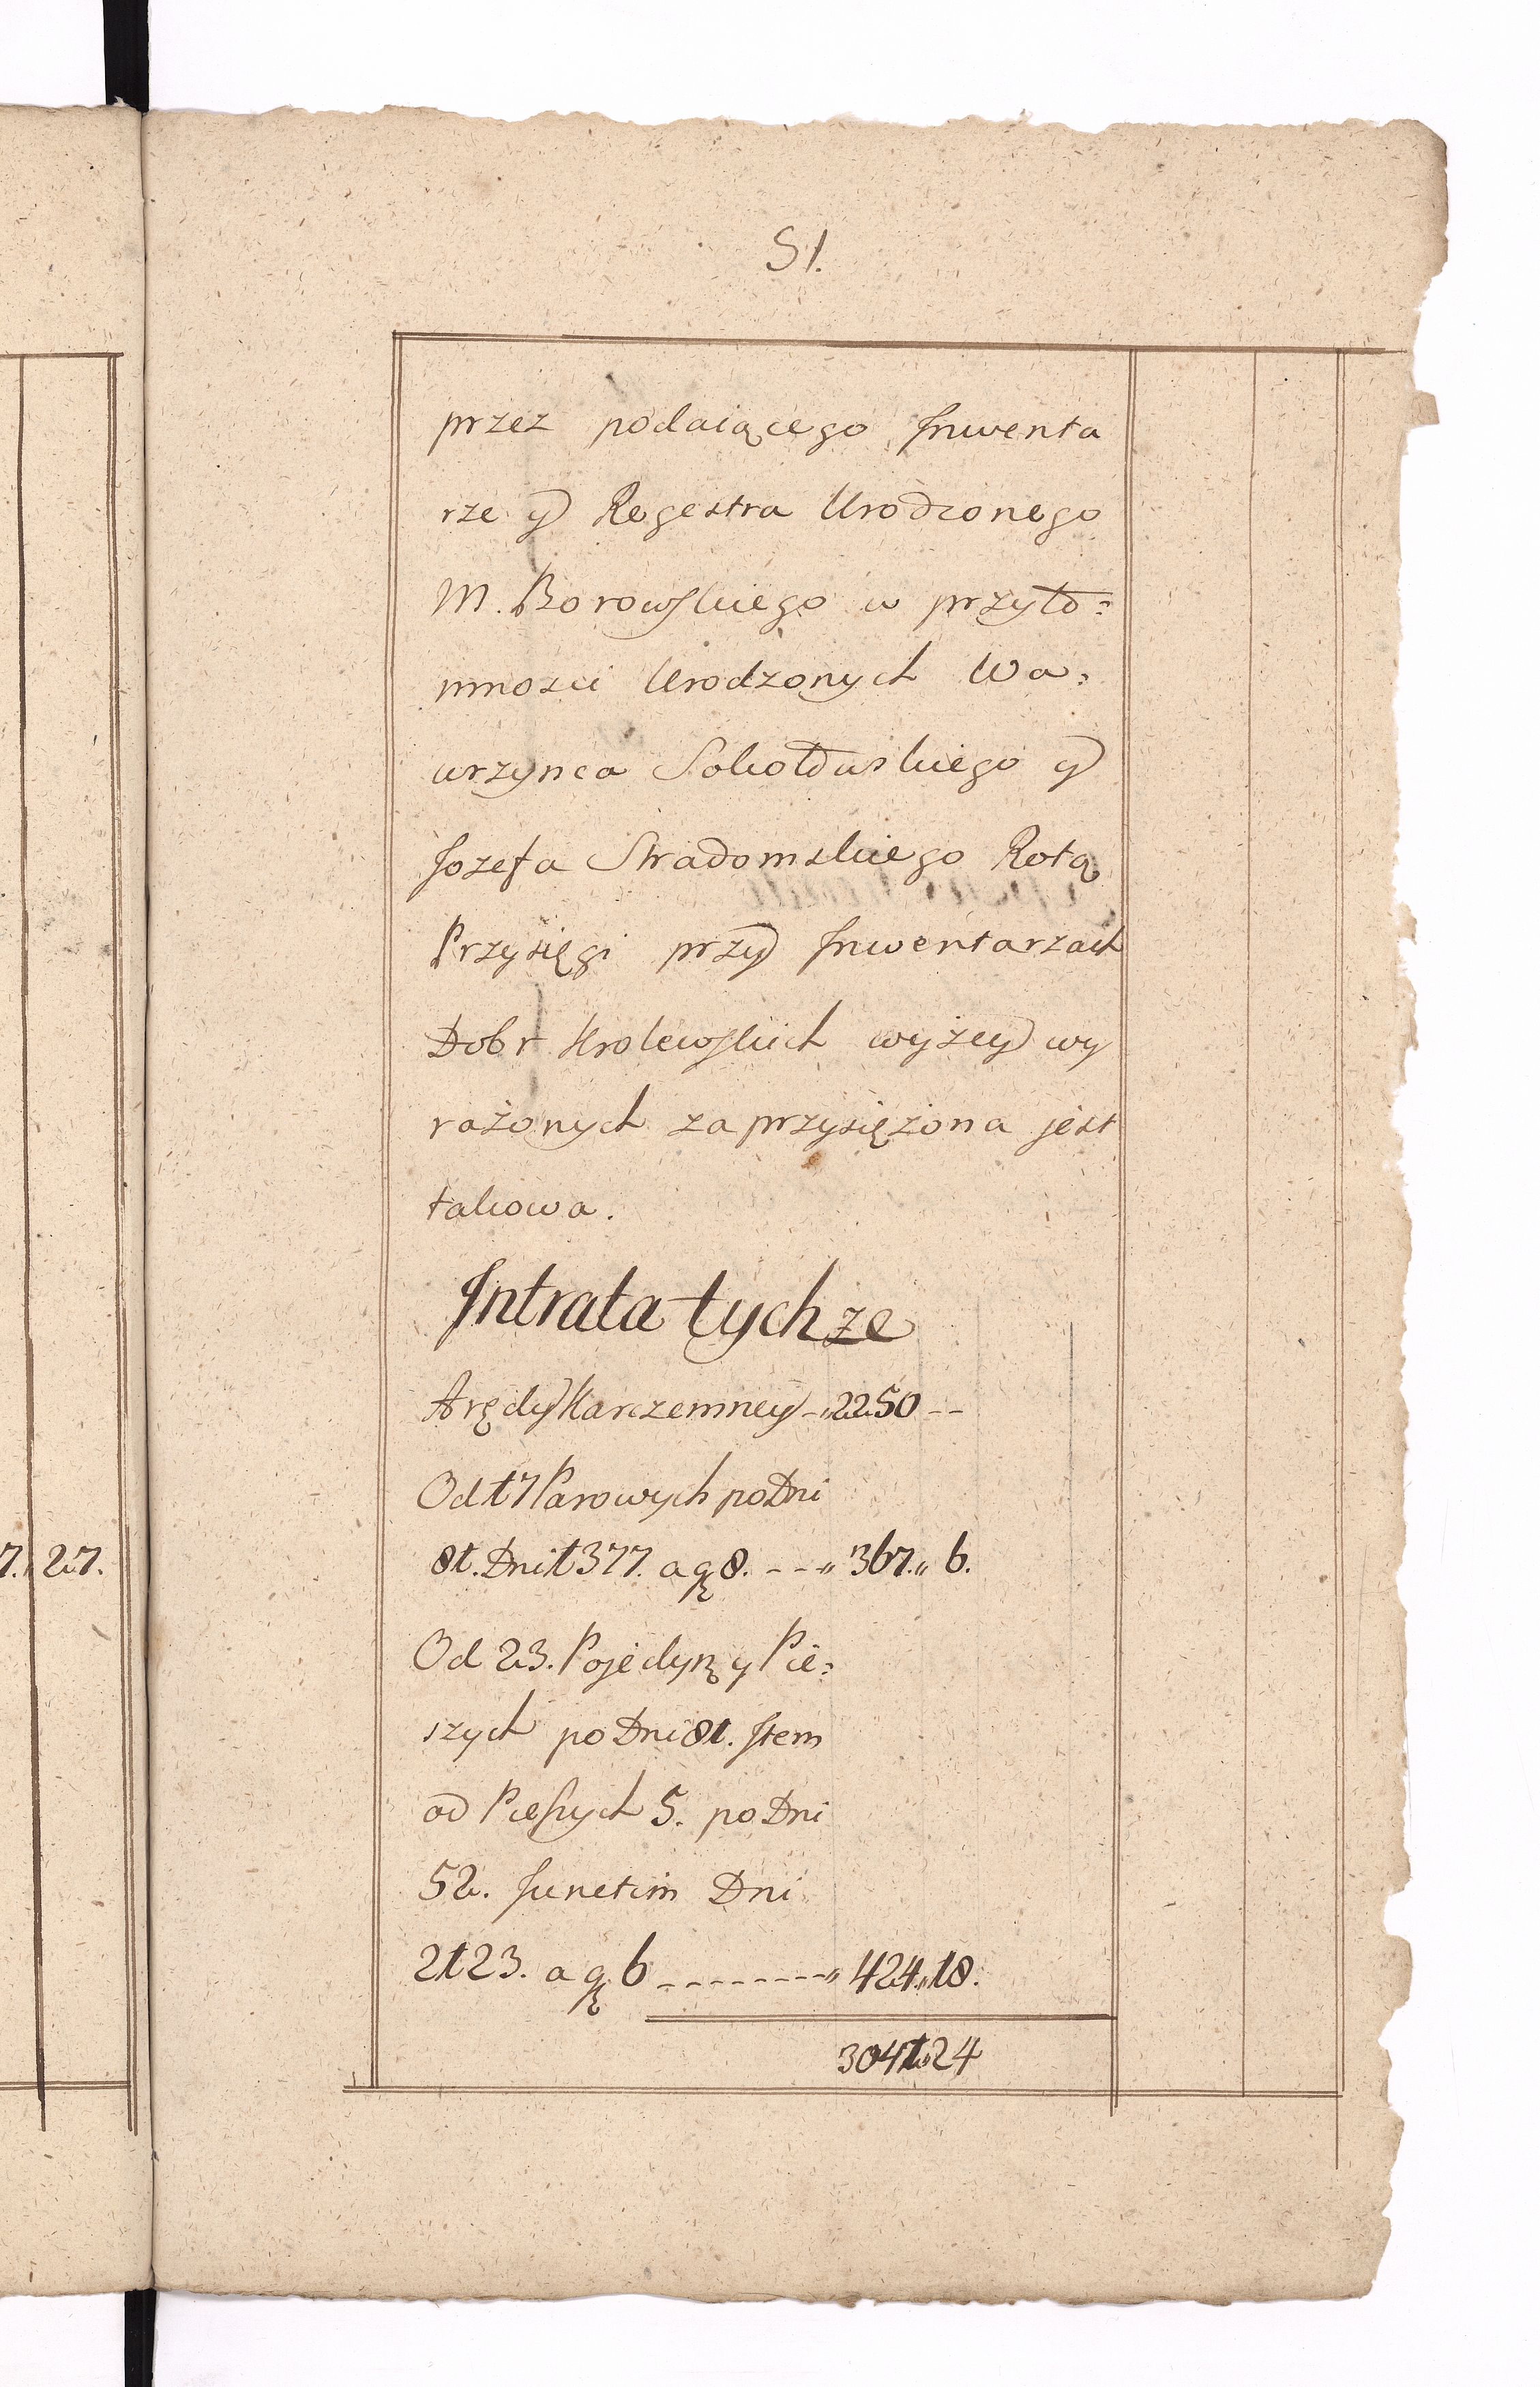 51.
przez podaiącego Inwenta
rze y Regestra Urodzonego
M. Borowskiego w przyto=
mnosci Urodzonych Wa=
wrzynca Sokołowskiego y
Jozefa Stradomskiego Rotą
Przysięgi przy Inwentarzach
Dobr Krolewskich wyżey wy
rażonych zaprzysiężona jest
takowa.
Intrata tychże
Arędy Karczemney -„2250 --
Od 17 Parowych po Dni
81. Dni 1377. a gę 8. ---„ 367.„ 6.
7. 27.
Od 23. Pojedynę y Pie=
szych po Dni 81. Item
od Pieszych 5. po Dni
52. Junctim Dni
2123. a gę 6 --------„ 424„18.
3041„24